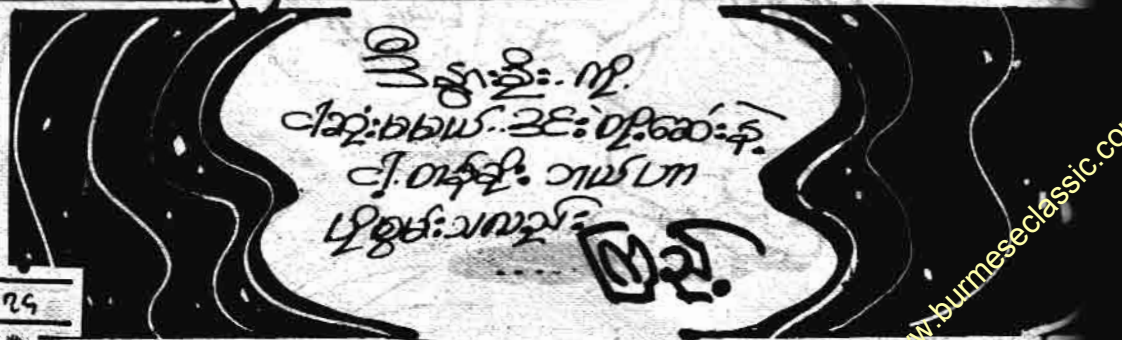 ဒီနွားဦး..ကို.
ငါဆုံးမမယ်..ဒင်းတို့ဆေးနဲ့
ငါ့တန်ခိုး ဘယ်ဟာ
ပိုစွမ်းသလည်း
.....ကြည့်
၁၄
www.burmeseclassic.com